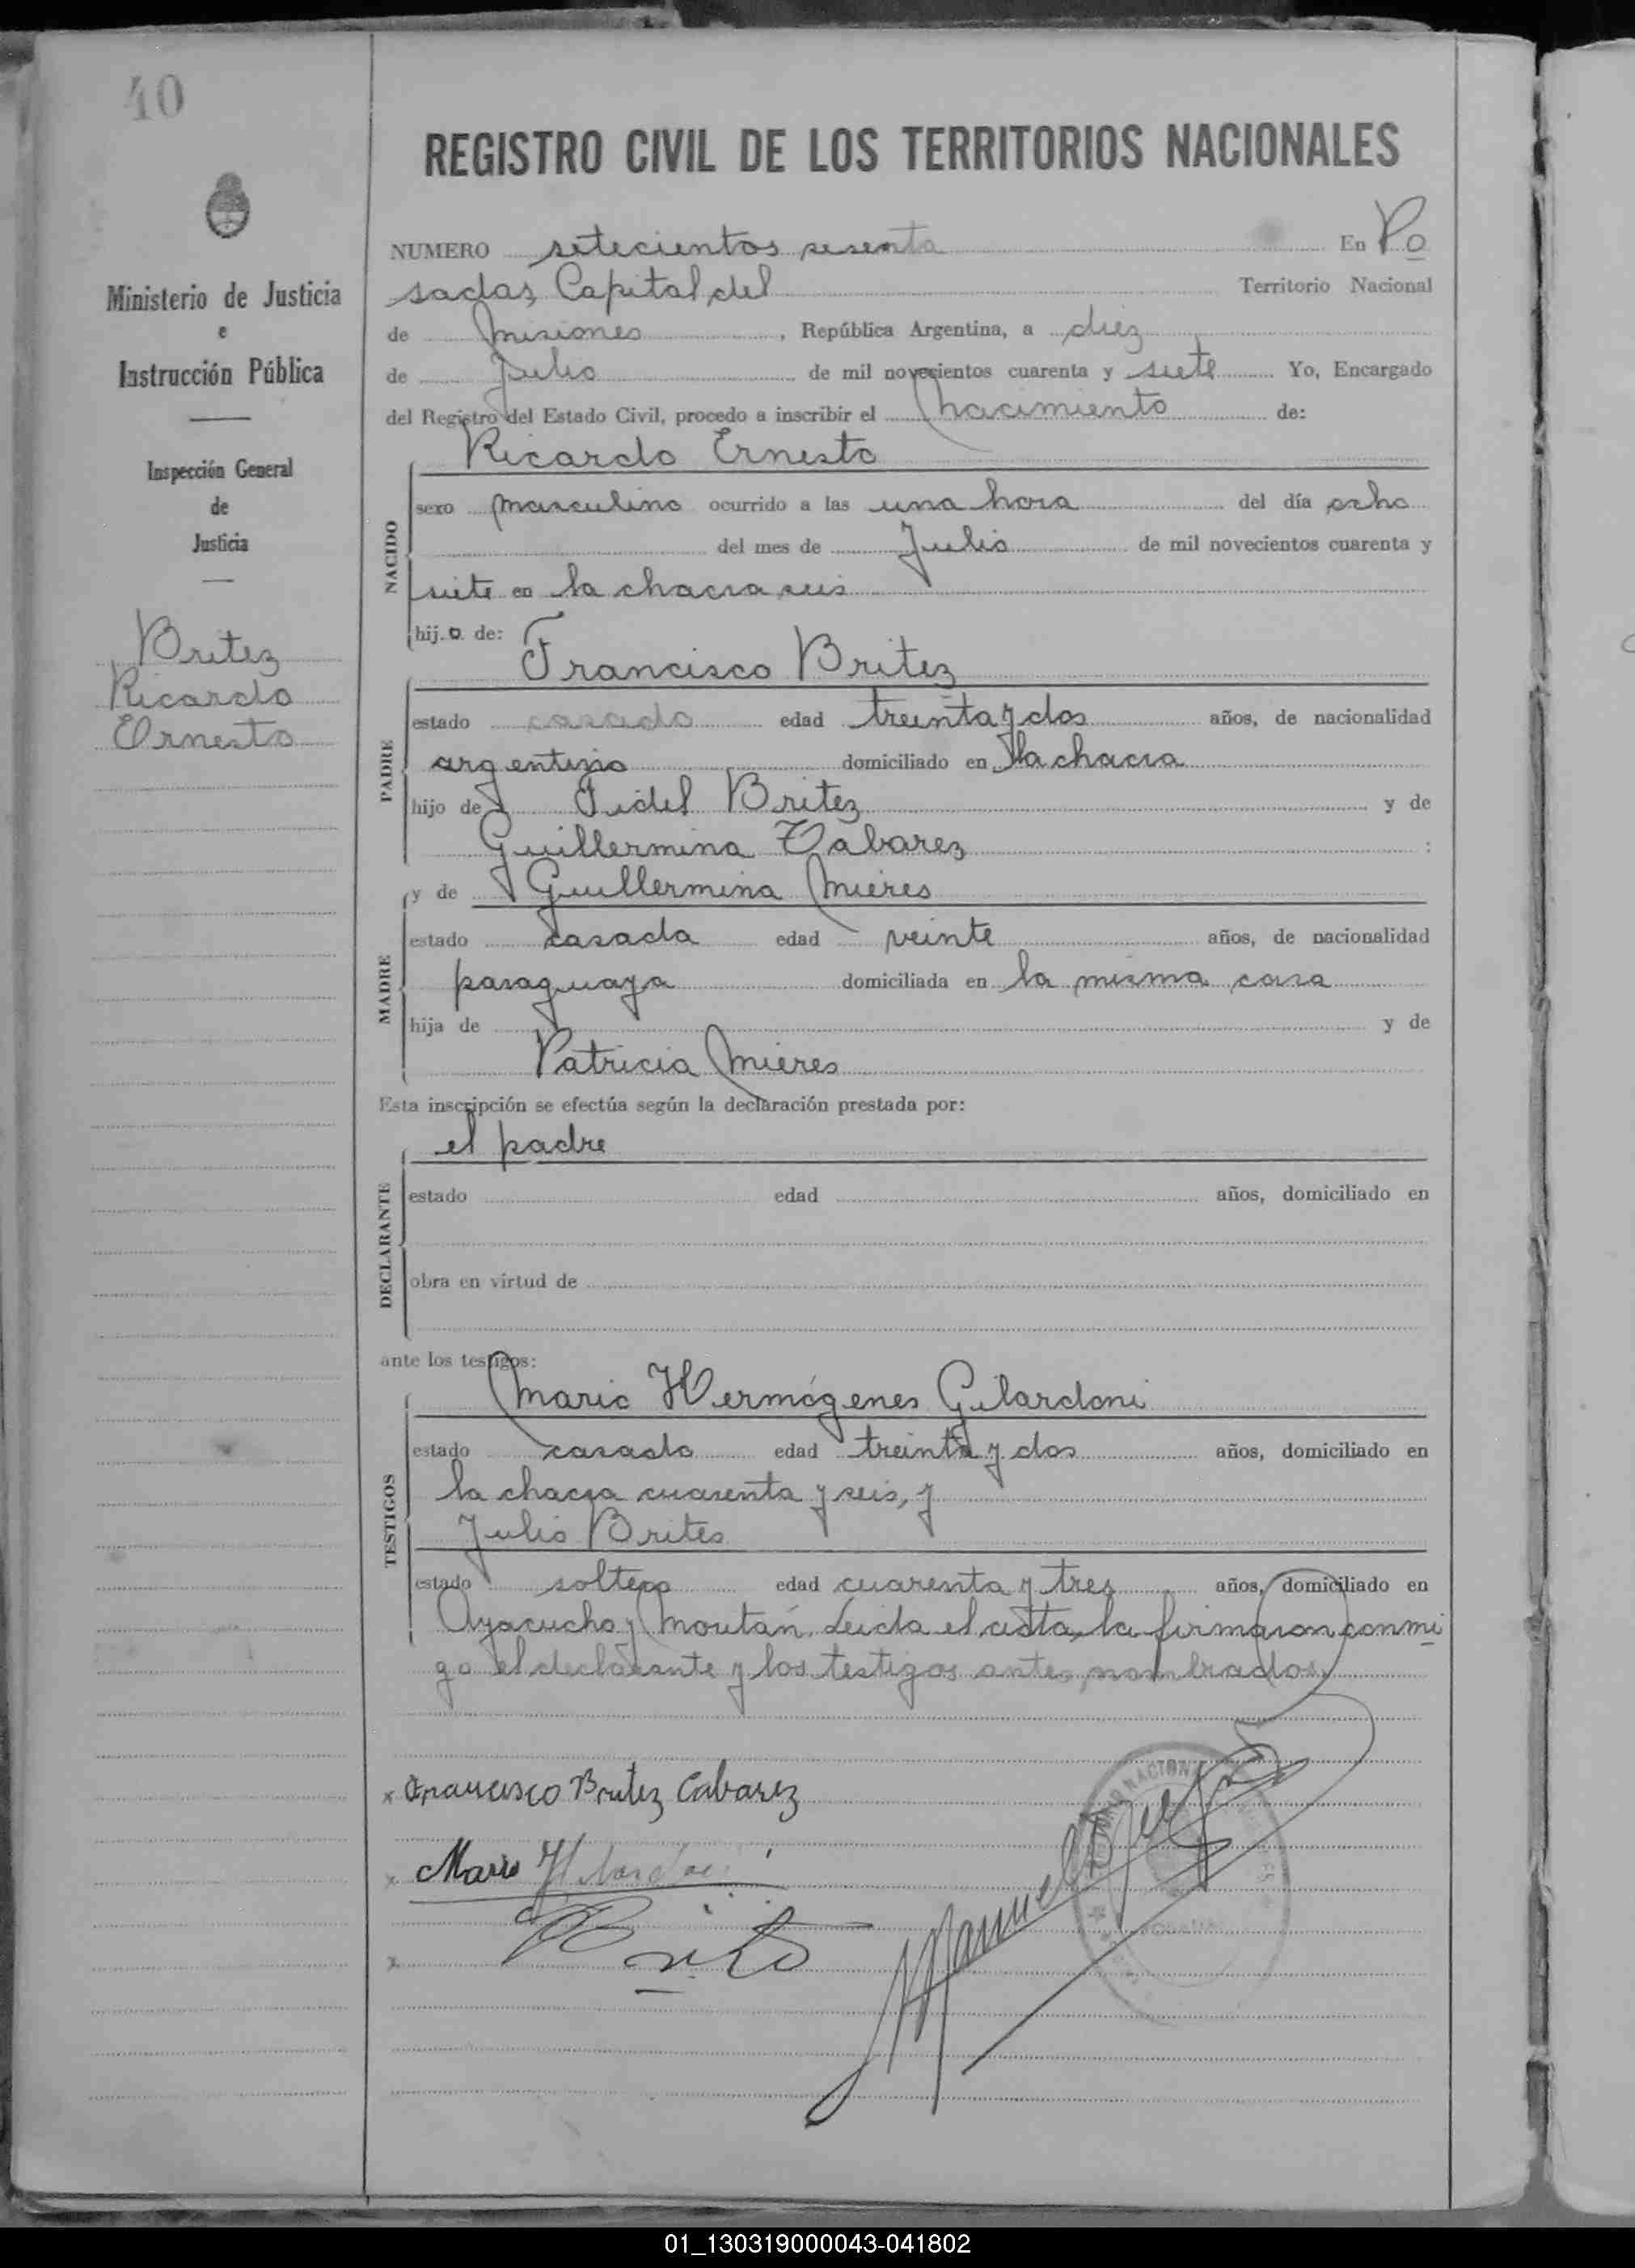 40
REGISTRO CIVIL DE LOS TERRITORIOS NACIONALES
Ministerio de Justicia
e
Instrucción Pública
Inspección General
de
Justicia
Britez
Ricardo
Ernesto
NUMERO setecientos sesenta En Po
sadas, Capital del Territorio Nacional
de Misiones, República Argentina, a diez
de Julio de mil novecientos cuarenta y siete Yo, Encargado
del Registro del Estado Civil, procedo a inscribir el Nacimiento de:
Ricardo Ernesto
NACIDO
sexo masculino ocurrido a las una hora del día ocho
del mes de Julio de mil novecientos cuarenta y
siete en la chacra seis
hijo de:
Francisco Britez
PADRE
estado casado edad treinta y dos años, de nacionalidad
argentino domiciliado en la chacra
hijo de Fidel Britez y de
Guillermina Tabarez :
MADRE
y de Guillermina Mieres
estado casada edad veinte años, de nacionalidad
paraguaya domiciliada en la misma casa
hija de y de
Patricia Mieres
Esta inscripción se efectúa según la declaración prestada por:
el padre
DECLARANTE
estado edad años, domiciliado en
obra en virtud de
ante los testigos:
Mario Hermógenes Gilardoni
TESTIGOS
estado casado edad treinta y dos años, domiciliado en
la chacra cuarenta y seis, y
Julio Brites
estado soltero edad cuarenta y tres años, domiciliado en
Ayacucho y Moután. Leida el acta, la firmaron conmi
go el declarante y los testigos antes nombrados.
x Francisco Britez Cabarez
x Mario
x
Manuel
01_130319000043-041802